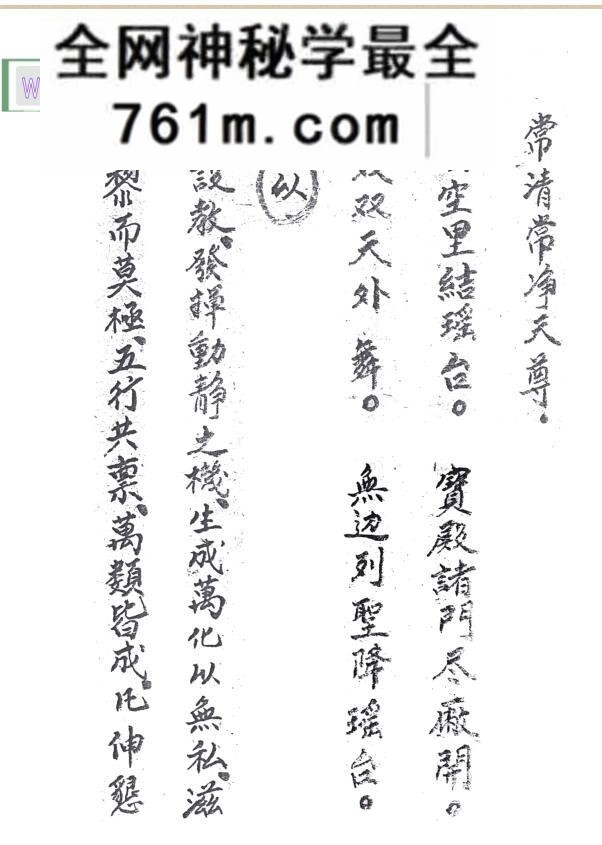 全网神秘学最全
761m.com
W
常清常净天尊。
空里結瑶台。寶殿諸門尽廠開。
双天外舞。無边列聖降瑶台。
以
設教。發揮動靜之機。生成萬化以無私。滋
黎而莫極。五行共禀。萬類皆成。凡伸懇